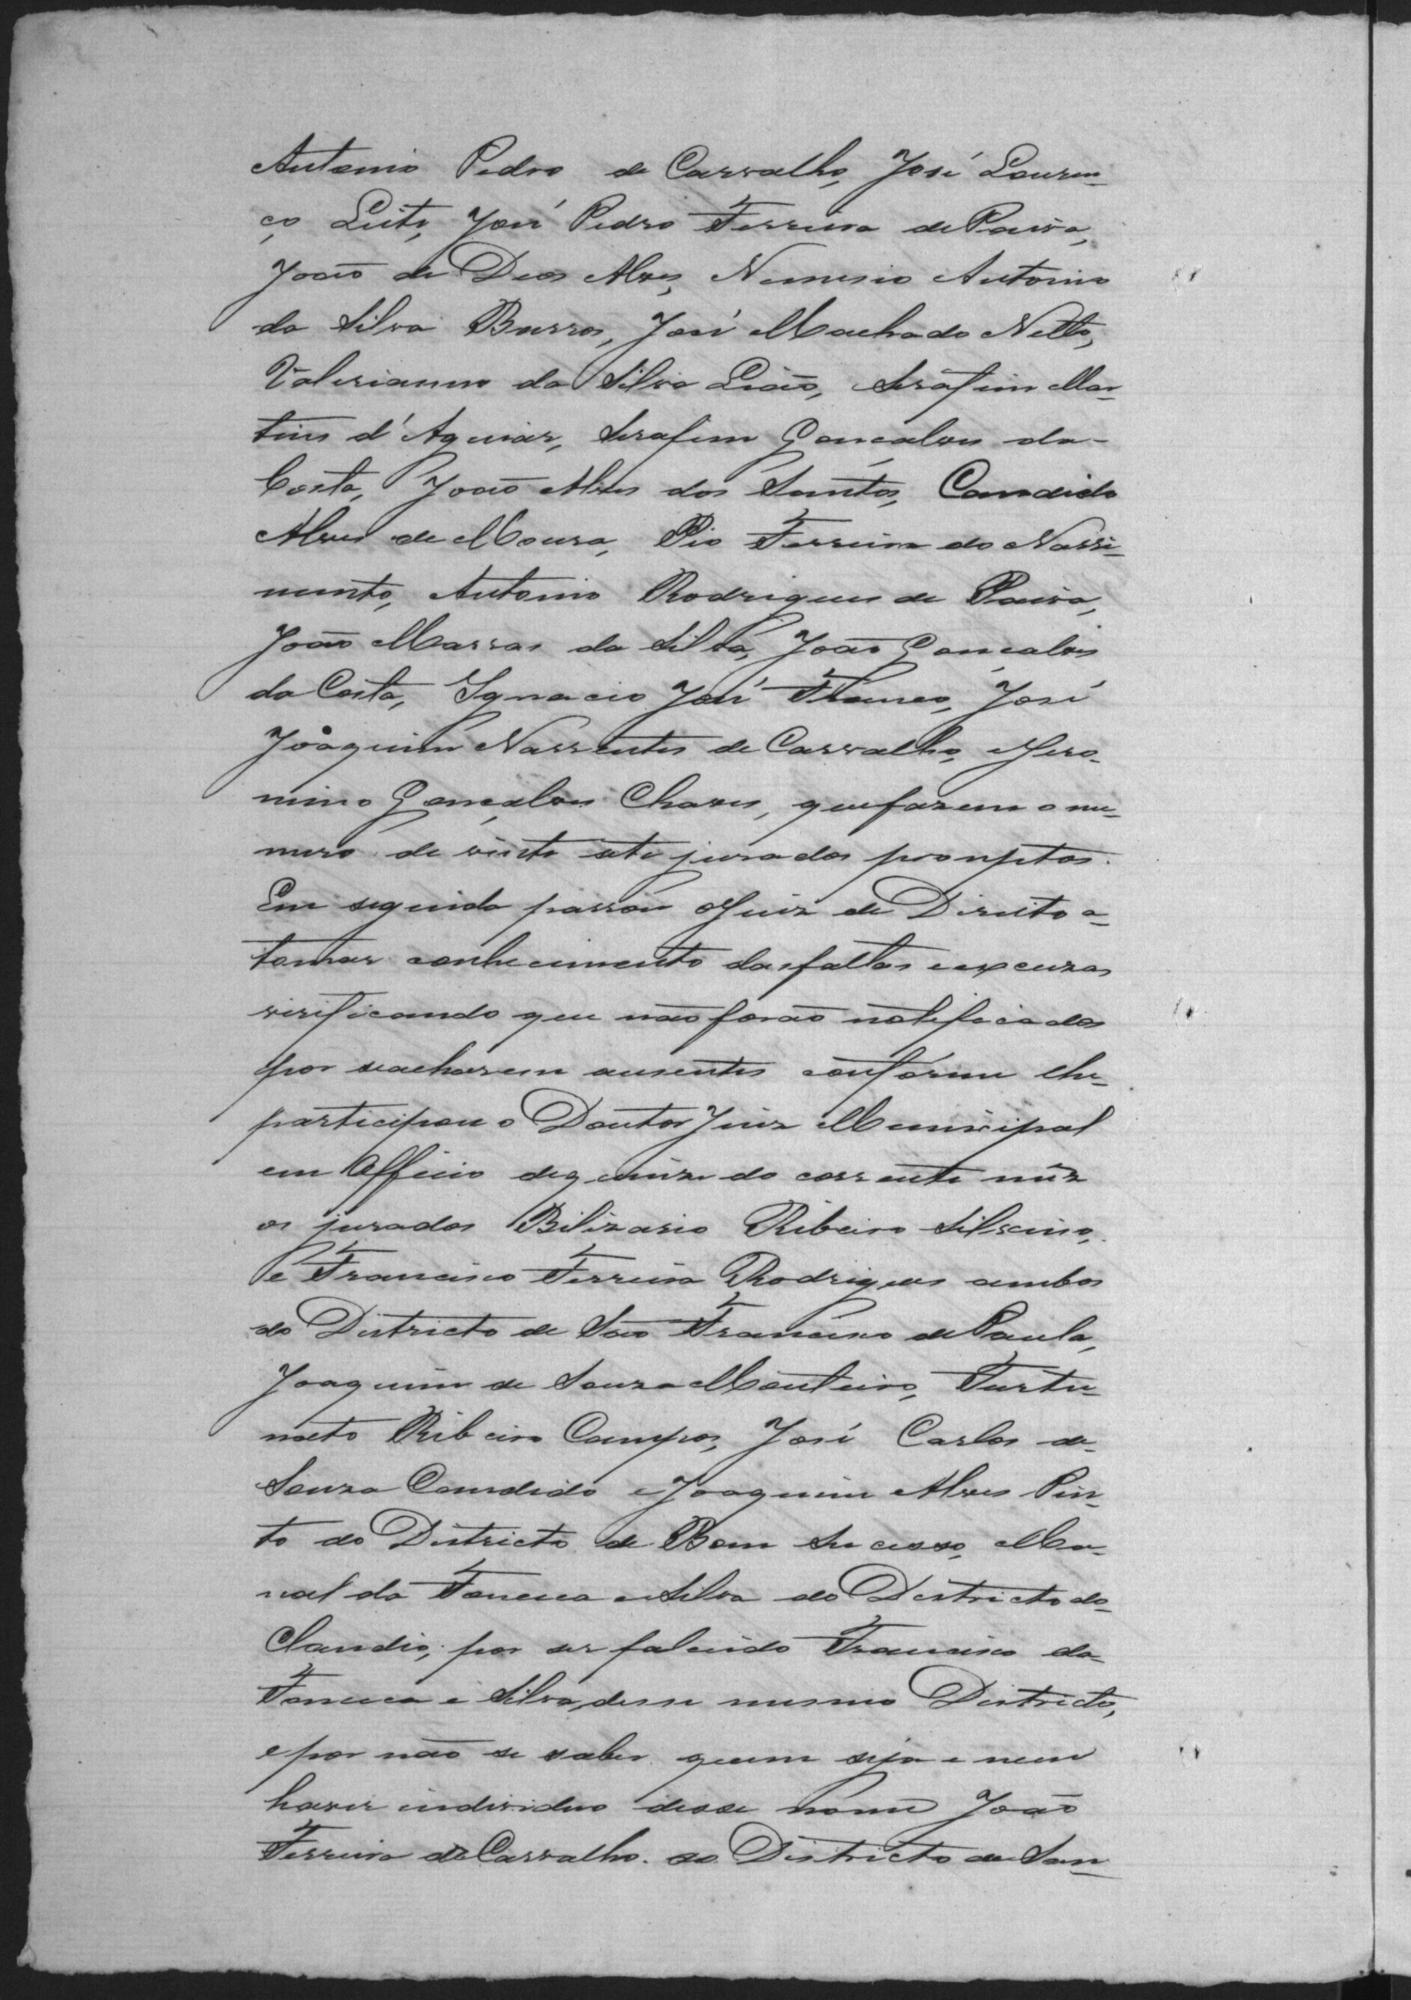 Antonio Pedro de Carvalho, José Louren-
ço Leite, José Pedro Ferreira de Paiva,
João de Deos Alves, Nemesio Antonio
da Silva Barros, José Machado Netto,
Valerianno da Silva Leão, Serafim Mar-
tins d'Aguiar, Serafim Gonçalves da-
Costa, João Alves dos Santos, Candido
Alves de Moura, Pio Ferreira do Nassi-
mento, Antonio Rodrigues de Paiva,
João Marras da Silva, João Gonçalves
da Costa, Ignacio José Franco, José
Joaquim Nassentes de Carvalho, e Jero-
nimo Gonçalves Chaves, que fazem o nu-
mero de vinte sete jurados promptos.
Em seguida passou o Juiz de Direito a-
tomar conhecimento das faltas e excuzas
virificando que não forão notificados
por se acharem ausentes conforme lhe-
participou o Doutor Juiz Municipal
em Officio de quinze do corrente mêz
os jurados Bilizario Ribeiro Silverino,
e Francisco Ferreira Rodrigues ambos
do Districto de São Francisco de Paula,
Joaquim de Souza Monteiro, Furtu-
nato Ribeiro Campos, José Carlos de-
Souza Candido e Joaquim Alves Pin-
to do Districto de Bom Sucesso, Ma-
noel da Fonceca e Silva do Districto do-
Claudio, por ser falecido Francisco da-
Fonceca e Silva, desse mesmo Districto,
e por não se saber quem seja e nem
haver individuo desse nome João
Ferreira de Carvalho do Districto de San-